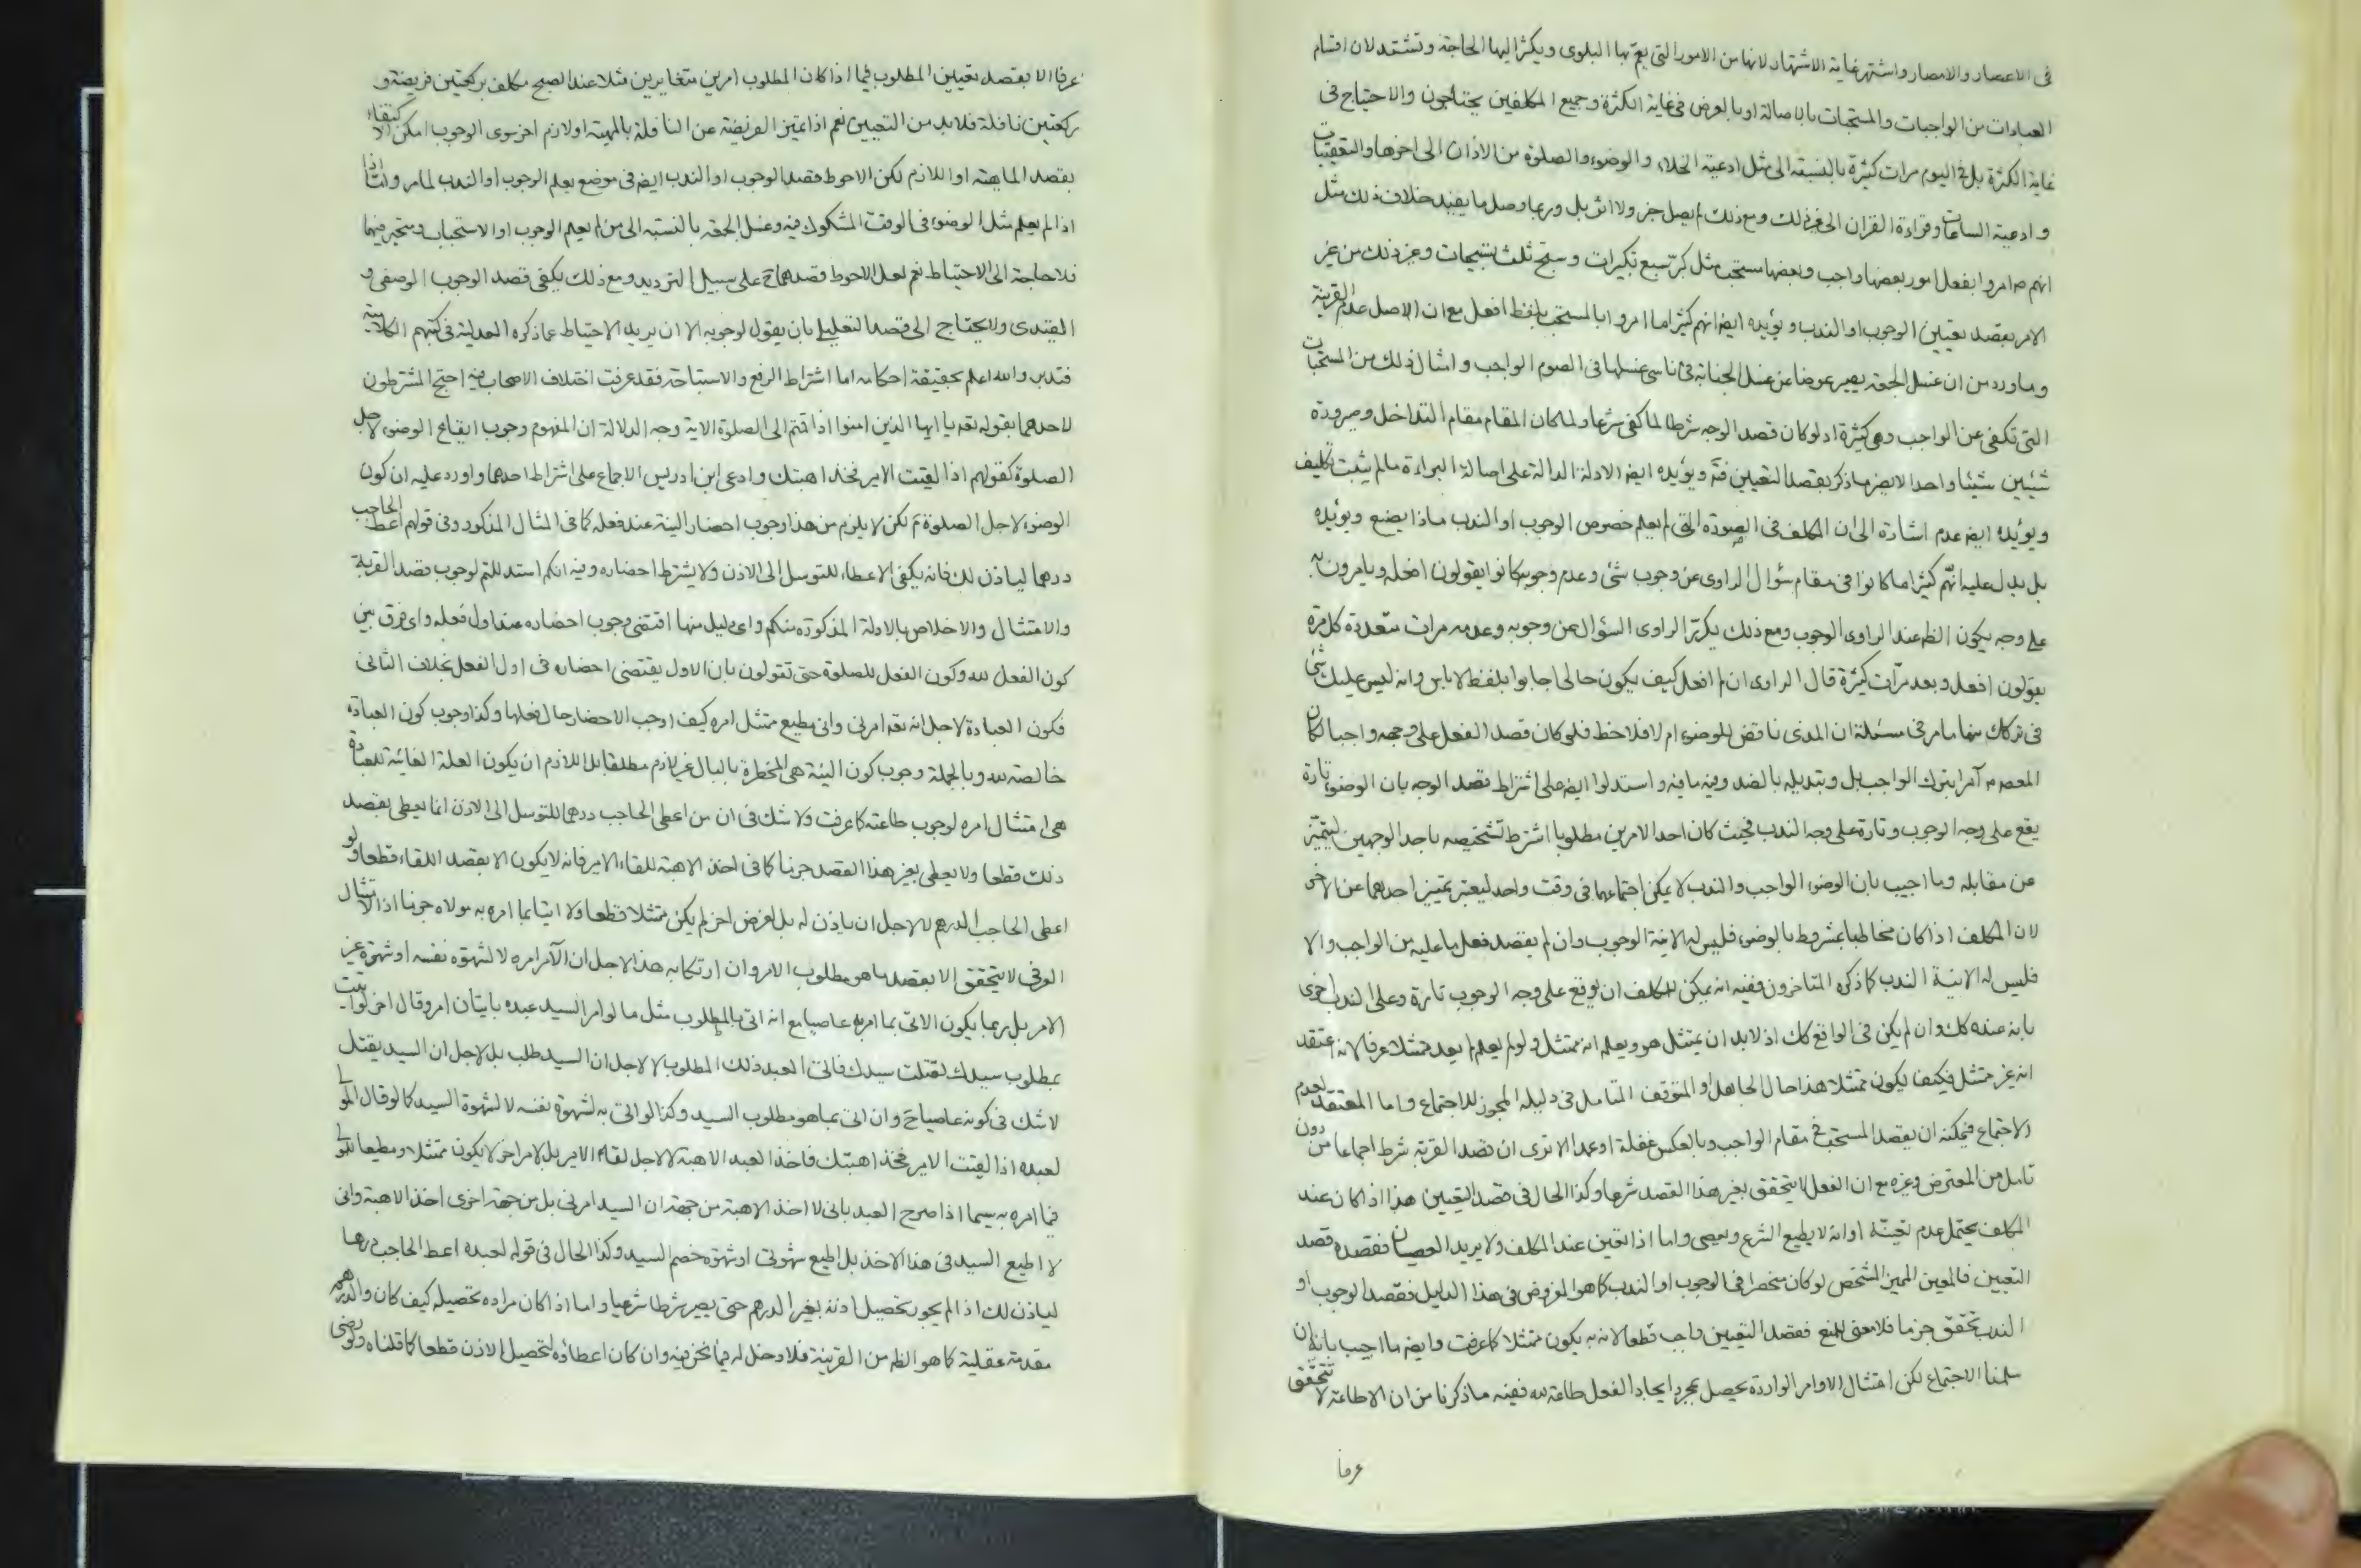 فى الاعصار والامصار واشتهر غاية الاشتهار لانها من الامور التى يعم بها البلوى ويكثر اليها الحاجة وتشتد لان اقسام
العبادات من الواجبات والمستحبات بالاصالة او بالعرض فى غاية الكثرة وجميع المكلفين يحتاجون والاحتياج فى
غاية الكثرة بل فى اليوم مرات كثيرة بالنسبة الى مثل ادعية الخلاء والوضوء والصلوة من الاذان الى اخرها والتعقيبات
وادعية الساعات وقراءة القران الى غير ذلك ومع ذلك لم يصل خبر ولا اثر بل وربما وصل ما يفيد خلاف ذلك مثل
انهم ع امروا بفعل امور بعضها واجب وبعضها مستحب مثل كبر سبع تكبيرات وسبح ثلث تسبيحات وغير ذلك من غير
الامر بقصد تعيين الوجوب او الندب ويؤيده ايضا انهم كثيرا ما امروا بالمستحب بلفظ افعل مع ان الاصل عدم القرينة
وما ورد من ان غسل الجمعة يصير عوضا عن غسل الجنابة فى ناسى غسلها فى الصوم الواجب وامثال ذلك من المستحبات
التى تكفى عن الواجب وهى كثيرة اذ لو كان قصد الوجه شرطا لما كفى شرعا ولما كان المقام مقام التداخل وصيرورة
شيئين شيئا واحدا لا يضر ما ذكر بقصد التعيين فتـ ويؤيده ايضا الادلة الدالة على اصالة البراءة مالم يثبت تكليف
ويؤيده ايضا عدم اشارة الى ان المكلف فى الصورة التى لم يعلم خصوص الوجوب او الندب ماذا يصنع ويؤيده
بل يدل عليه انهم كثيرا ما كانوا فى مقام سؤال الراوى عن وجوب شئ وعدم وجوبه كانوا يقولون افعله ويامرون به
على وجه يكون الظ عند الراوى الوجوب ومع ذلك يكرر الراوى السؤال عن وجوبه وعدمه مرات متعددة كل مرة
يقولون افعل وبعد مرات كثيرة قال الراوى ان لم افعل كيف يكون حالى اجابوا بلفظ لا باس وانه ليس عليك شئ
فى تركك منها ما مر فى مسئلة ان المذى ناقض للوضوء ام لا فلاحظ فلو كان قصد الفعل على وجهه واجبا لكان
المعصوم ع آمرا بترك الواجب بل وبتديله بالضد وفيه ما فيه واستدلوا ايضا على اشتراط قصد الوجه بان الوضوء تارة
يقع على وجه الوجوب وتارة على وجه الندب فحيث كان احد الامرين مطلوبا اشترط تشخيصه باحد الوجهين ليتميز
عن مقابله وما اجيب بان الوضوء الواجب والندب لا يمكن اجتماعهما فى وقت واحد ليعتبر تمييز احدهما عن الاخر
لان المكلف اذا كان مخاطبا بمشروط بالوضوء فليس له الا نية الوجوب وان لم يقصد فعل ما عليه من الواجب والا
فليس له الا نية الندب كما ذكره المتاخرون ففيه انه يمكن للمكلف ان يوقع على وجه الوجوب تارة وعلى الندب اخرى
بانه عنده كك وان لم يكن فى الواقع كك اذ لا بد ان يمتثل هو ويعلم انه ممتثل ولو لم يعلم لم يعد ممتثلا عرفا لانه اعتقد
انه غير ممتثل فكيف يكون ممتثلا هذا حال الجاهل او المتوقف المتامل فى دليله المجوز للاجتماع واما المعتقد لعدم
الاجتماع فيمكنه ان يقصد المستحب فى مقام الواجب وبالعكس غفلة او عمدا الا ترى ان قصد القربة شرط اجماعا من دون
تامل من المعترض وغيره مع ان الفعل لا يتحقق بغير هذا القصد شرعا وكذا الحال فى قصد التعيين هذا اذا كان عند
المكلف يحتمل عدم تعينه او انه لا يطيع الشرع ويعصى واما اذا تعين عند المكلف ولا يريد العصيان فقصده قصد
التعيين فالمعين المميز المشخص لو كان منحصرا فى الوجوب او الندب كما هو المفروض فى هذا الدليل فقصد الوجوب او
الندب تحقق جزما فلا معنى للمنع فقصد التعيين واجب قطعا لانه به يكون ممتثلا كما عرفت وايضا ما اجيب بانه ان
سلمنا الاجتماع لكن امتثال الاوامر الواردة يحصل بمجرد ايجاد الفعل طاعة لله ففيه ما ذكرنا من ان الاطاعة لا تتحقق
عرفا
عرفا الا بقصد تعيين المطلوب فيما اذا كان المطلوب امرين متغايرين مثلا عند الصبح مكلف بركعتين فريضة و
ركعتين نافلة فلا بد من التعيين نعم اذا تميز الفريضة عن النافلة بالمهية او لازم اخر سوى الوجوب امكن الاكتفاء
بقصد الماهية او اللازم لكن الاحوط قصد الوجوب او الندب ايضا فى موضع يعلم الوجوب او الندب لما مر واما اذا
اذا لم يعلم مثل الوضوء فى الوقت المشكوك فيه وغسل الجمعة بالنسبة الى من لم يعلم الوجوب او الاستحباب ومتحير فيهما
فلا حاجة الى الاحتياط نعم لعل الاحوط قصدهما ح على سبيل الترديد ومع ذلك يكفى قصد الوجوب الوصفى و
القيدى ولا يحتاج الى قصد التعليل بان يقول لوجوبه الا ان يريد الاحتياط عما ذكره العدلية فى كتبهم الكلامية
فتدبر والله اعلم بحقيقة احكامه اما اشتراط الرفع والاستباحة فقد عرفت اختلاف الاصحاب فيه احتج المشترطون
لاحدهما بقوله تعه يا ايها الذين امنوا اذا قمتم الى الصلوة الاية وجه الدلالة ان المفهوم وجوب ايقاع الوضوء لاجل
الصلوة كقولهم اذا لقيت الامير فخذ اهبتك وادعى ابن ادريس الاجماع على اشتراط احدهما واورد عليه ان كون
الوضوء لاجل الصلوة ثم لكن لا يلزم من هذا وجوب احضار النية عند فعله كما فى المثال المذكور وفى قولهم اعط الحاجب
درهما لياذن لك فانه يكفى الاعطاء للتوسل الى الاذن ولا يشترط احضاره وفيه انكم استدللتم لوجوب قصد القربة
والامتثال والاخلاص بالادلة المذكورة منكم واى دليل منها اقتضى وجوب احضاره عند اول فعله واى فرق بين
كون الفعل لله وكون الفعل للصلوة حتى تقولون بان الاول يقتضى احضاره فى اول الفعل بخلاف الثانى
فكون العبادة لاجل انه تعه امرنى وانى مطيع ممتثل امره كيف اوجب الاحضار حال فعلها وكذا وجوب كون العبادة
خالصة لله وبالجملة وجوب كون النية هى المخطرة بالبال غير لازم مطلقا بل اللازم ان يكون العلة الغائية للعبادة
هى امتثال امره لوجوب طاعته كما عرفت ولا شك فى ان من اعطى الحاجب درهما للتوسل الى الاذن انما يعطى بقصد
ذلك قطعا ولا يعطى بغير هذا القصد جزما كما فى اخذ الاهبة للقاء الامير فانه لا يكون الا بقصد اللقاء قطعا ولو
اعطى الحاجب الدرهم لا لاجل ان ياذن له بل لغرض اخر لم يكن ممتثلا قطعا ولا اتيا بما امره به مولاه جزما اذ الامتثال
العرفى لا يتحقق الا بقصد ما هو مطلوب الامر وان ارتكابه هذا لاجل ان الآمر امره لا لشهوة نفسه او شهوة غير
الامر بل ربما يكون الاتى بما امر به عاصيا مع انه اتى بالمطلوب مثل ما لو امر السيد عبده باتيان امر وقال اخر لو اتيت
بمطلوب سيدك لقتلت سيدك فاتى العبد ذلك المطلوب لا لاجل ان السيد طلب بل لاجل ان السيد يقتل
لا شك فى كونه عاصيا ح وان اتى بما هو مطلوب السيد وكذا لو اتى به لشهوة نفسه لا لشهوة السيد كما لو قال المولى
لعبده اذا لقيت الامير فخذ اهبتك فاخذ العبد الاهبة لا لاجل لقاء الامير بل لامر اخر لا يكون ممتثلا ومطيعا للمولى
فيما امره به سيما اذا صرح العبد بانى لا اخذ الاهبة من جهة ان السيد امرنى بل من جهة اخرى اخذ الاهبة وانى
لا اطيع السيد فى هذا الاخذ بل اطيع شهوتى او شهوة خصم السيد وكذا الحال فى قوله لعبده اعط الحاجب درهما
لياذن لك اذا لم يجوز تحصيل اذنه بغير الدرهم حتى يصير شرطا شرعيا واما اذا كان مراده تحصيله كيف كان والدرهم
مقدمة عقلية كما هو الظ من القرينة فلا دخل له فيما نحن فيه وان كان اعطاؤه لتحصيل الاذن قطعا كما قلناه ولو رضى